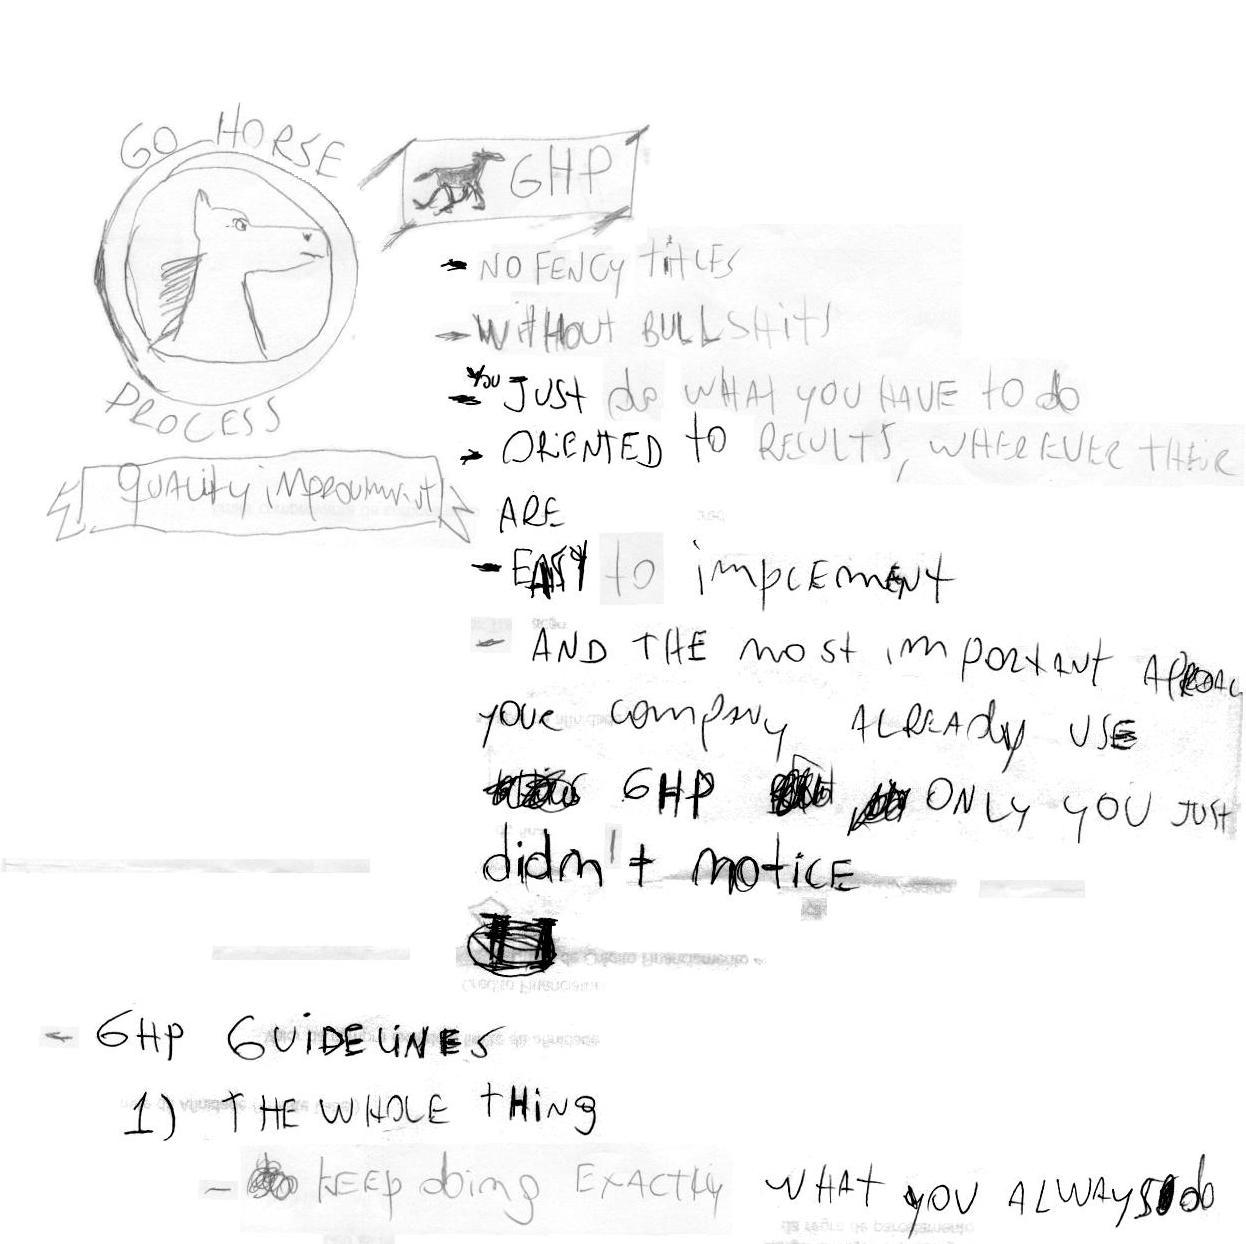 GO HORSE
PROCESS
QUALITY iMPROUMENT
GHP
- NO FENCY TiTLES
- WiTHOUT BULLSHiTS
- YOU JUST do WHAT YOU HAVE TO do
- ORiENTED TO RESULTS, WHEREVER THEiR
ARE
- EASY TO iMPLEMENT
- AND THE MOST iMPORTANT APROAC
YOUR COMPANY ALREADY USE
GHP ONLY YOU JUST
didn't noticE
- GHP GUiDELiNES
1) THE WHOLE THiNg
- KEEP doing EXACTLY WHAT YOU ALWAYS do